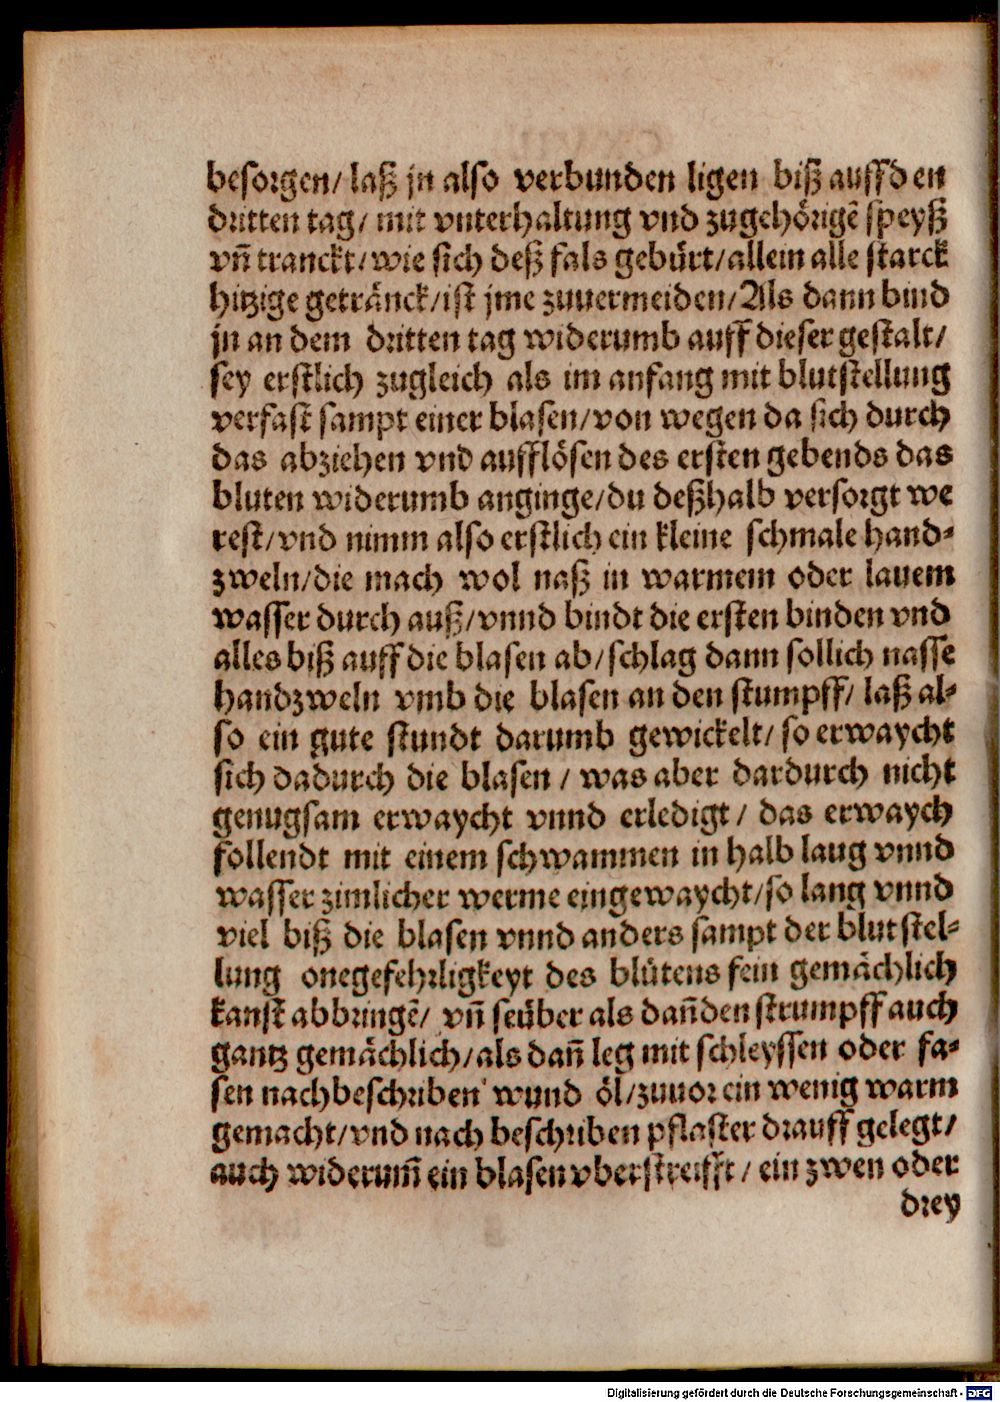 besorgen/ laß jn also verbunden ligen biß auff den
dritten tag/ mit vnterhaltung vnd zugehörigẽ speyß
vñ tranckt/ wie sich deß fals gebürt/ allein alle starck
hitzige getränck/ ist jme zuuermeiden/ Als dann bind
jn an dem dritten tag widerumb auff dieser gestalt/
sey erstlich zugleich als im anfang mit blutstellung
verfast sampt einer blasen/ von wegen da sich durch
das abziehen vnd aufflösen des ersten gebends das
bluten widerumb anginge/ du deßhalb versorgt we
rest/ vnd nimm also erstlich ein kleine schmale hand-
zweln/ die mach wol naß in warmem oder lauem
wasser durch auß/ vnnd bindt die ersten binden vnd
alles biß auff die blasen ab/ schlag dann sollich nasse
handzweln vmb die blasen an den stumpff/ laß al-
so ein gute stundt darumb gewickelt/ so erwaycht
sich dadurch die blasen / was aber dardurch nicht
genugsam erwaycht vnnd erledigt/ das erwaych
follendt mit einem schwammen in halb laug vnnd
wasser zimlicher werme eingewaycht/ so lang vnnd
viel biß die blasen vnnd anders sampt der blutstel-
lung onegefehrligkeyt des blütens fein gemächlich
kanst abbringẽ/ vñ seüber als dañ den strumpff auch
gantz gemächlich/ als dañ leg mit schleyssen oder fa-
sen nachbeschriben wund öl/ zuuor ein wenig warm
gemacht/ vnd nach beschriben pflaster drauff gelegt/
auch widerum̃ ein blasen vberstreifft/ ein zwen oder
drey
Digitalisierung gefördert durch die Deutsche Forschungsgemeinschaft - DFG